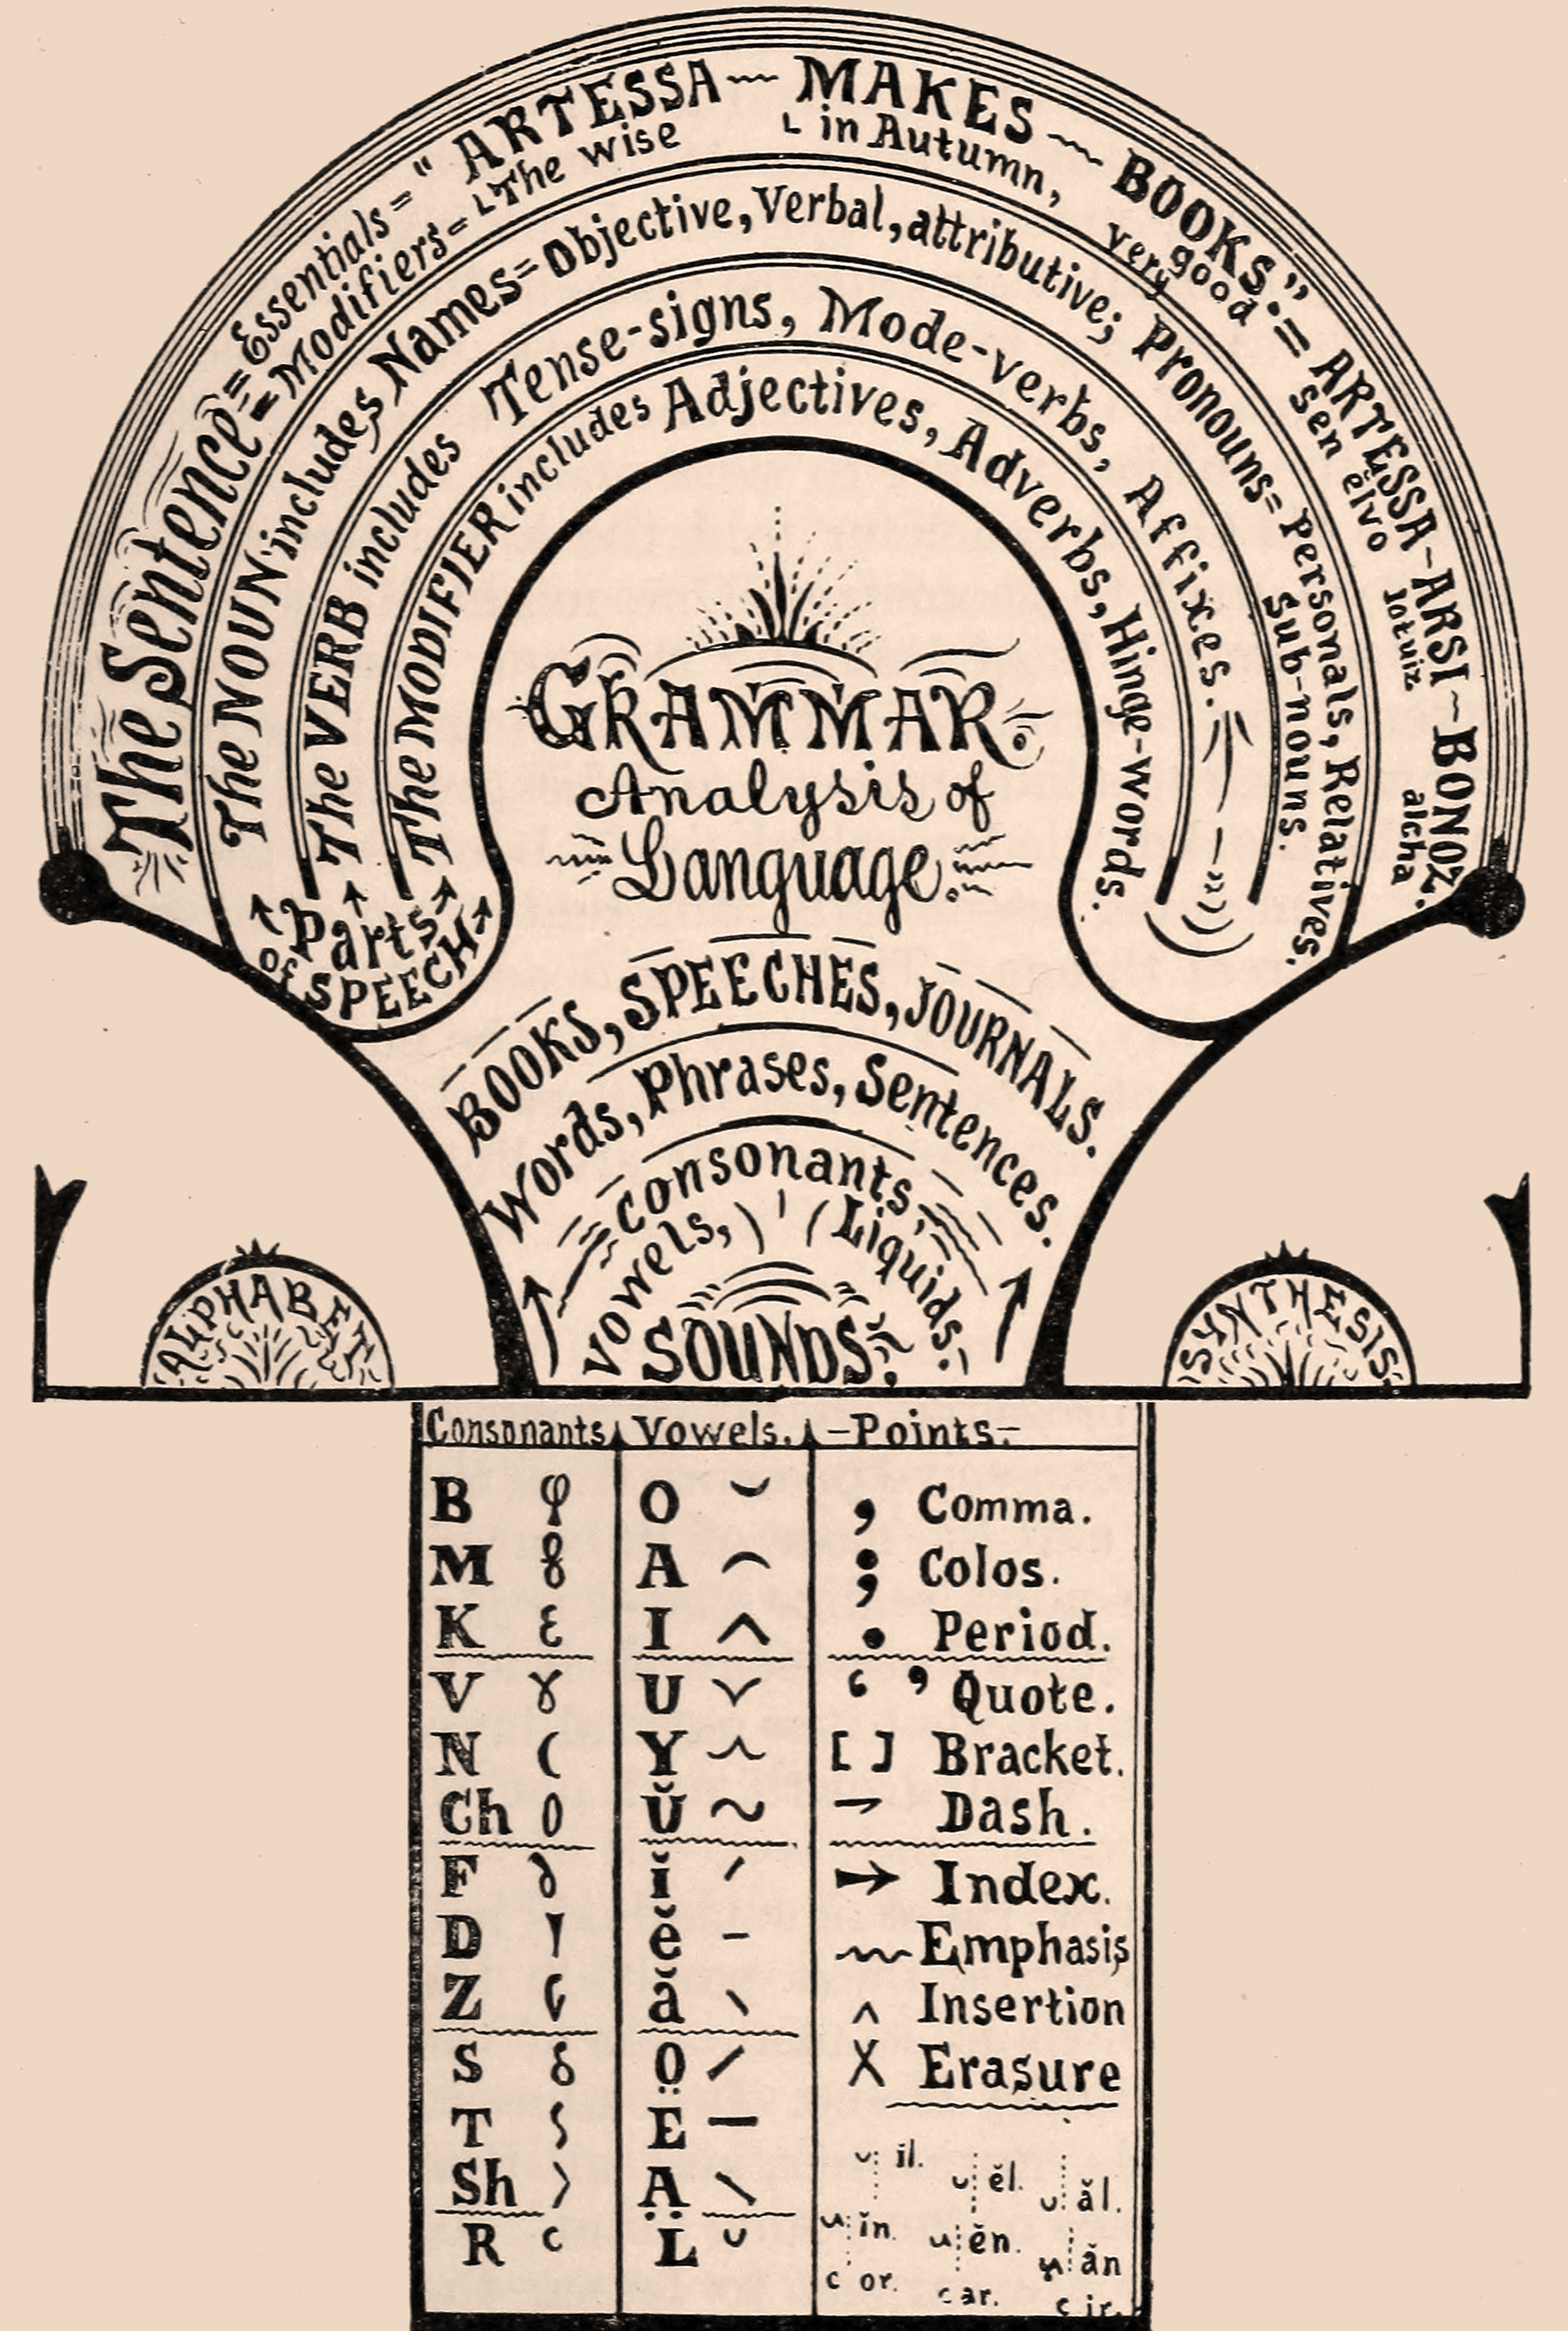 The Sentence = Essentials = " ARTESSA ~ MAKES ~ BOOKS." = ARTESSA - ARSI ~ BONOZ.
= Modifiers = ⌞The wise ⌞ in Autumn, very good = sen ĕlvo lotuiz alcha
The NOUN includes Names = Objective, Verbal, attributive; Pronouns = Personals, Relatives.
Sub-nouns.
The VERB includes Tense-signs, Mode-verbs, Affixes.
The MODIFIER includes Adjectives, Adverbs, Hinge-words.
Parts
of SPEECH
GRAMMAR.
Analysis of
Language.
BOOKS, SPEECHES, JOURNALS.
Words, Phrases, Sentences.
Consonants,
Vowels, Liquids.
SOUNDS.
ALPHABET
SYNTHESIS.
Consonants Vowels. –Points.–
B φ O ⌣ , Comma.
M 8 A ⌢ ; Colos.
K ε I ^ . Period.
V ɤ U ⌵ ‘ ’ Quote.
N ( Y ^ [ ] Bracket.
Ch 0 Ŭ ~ – Dash.
F ĭ ′ → Index.
D ĕ – ~ Emphasis
Z ă \ ^ Insertion
S δ O̤ / X Erasure
T E —
Sh 〉 Ạ \
R c L ᴗ
ĭl. ĕl. ăl.
ĭn. ĕn. ăn
c or. c ar. c ir.